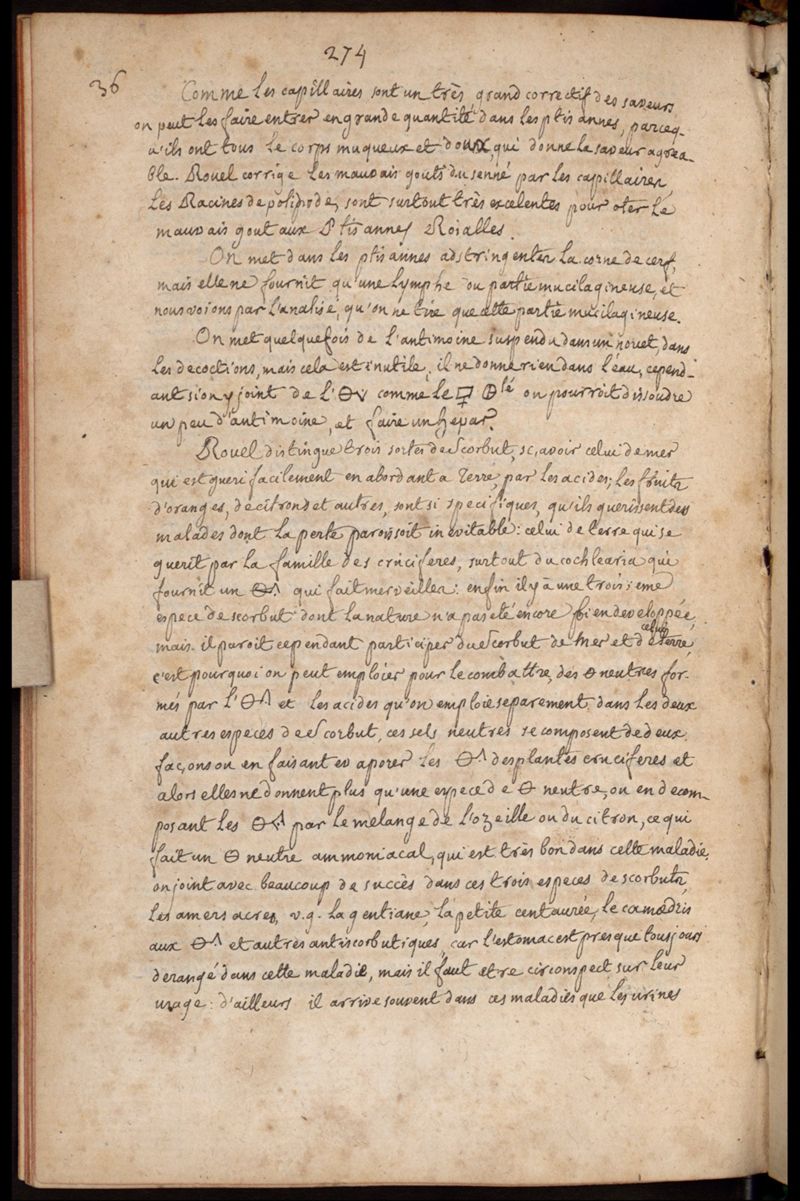 274
36
Comme les capillaires sont un très grand correctif des saveurs
on peut les faire entrer en grande quantité dans les ptisannes, parceq-
u'ils ont tous le corps muqueux et doux qui donne la saveur agréa-
ble. Rouel corrige les mauvais gouts du senné par les capillaires,
Les Racines de polipode, sont surtout très excelentes pour oter le
mauvais gout aux Ptisannes Roialles.
On met dans les ptisannes adstringentes la corne de cerf,
mais elle ne fournit qu'une lymphe ou partie mucilagineuse, et
nous voions par l'analise, qu'on ne tire que cette partie mucilagineuse.
On met quelquefois de l'antimoine suspendu dans un nouet, dans
les decoctions, mais cela est inutile, il ne donne rien dans l'eau, cepend-
ant si on y joint de l' comme le on pourroit dissoudre
un peu d'antimoine, et faire un hepar.
Rouel distingue trois sortes de scorbut, sçavoir celui de mer
qui est gueri facilement en abordant a Terre, par les acides; les fruits
d'oranges, de citrons et autres, sont si specifiques, qu'ils guerissent des
malades dont la perte paroissoit inevitable: celui de terre qui se
guerit par la famille des cruciferes, surtout du cochlearia qui
fournit un 🜔^ qui fait merveilles: enfin il y a une troisieme
espece de scorbut dont la nature n'a pas eté encore bien developpée,
mais il paroit cependant participer du scorbut de Mer et de celui de terre
c'est pourquoi on peut emploier pour le combattre, des 🜔 neutres for-
més par l'🜔^ et les acides qu'on emploie separement dans les deux
autres especes de scorbut, ces sels neutres se composent de deux
façons ou en faisant evaporer les 🜔^ des plantes cruciferes et
alors elles ne donnent plus qu'une espece de 🜔 neutre, ou en decom-
posant les 🜔^ par le melange de l'ozeille ou du citron, ce qui
fait un 🜔 neutre ammoniacal, qui est très bon dans cette maladie,
on joint avec beaucoup de succès dans ces trois especes de scorbuts,
les amers acres, v.g. la gentiane, la petite centaurée, le camædris
aux 🜔^ et autres antiscorbutiques, car l'estomac est presque tousjours
derangé dans cette maladie, mais il faut etre circonspect sur leur
usage: d'ailleurs il arrive souvent dans ces maladies que les urines